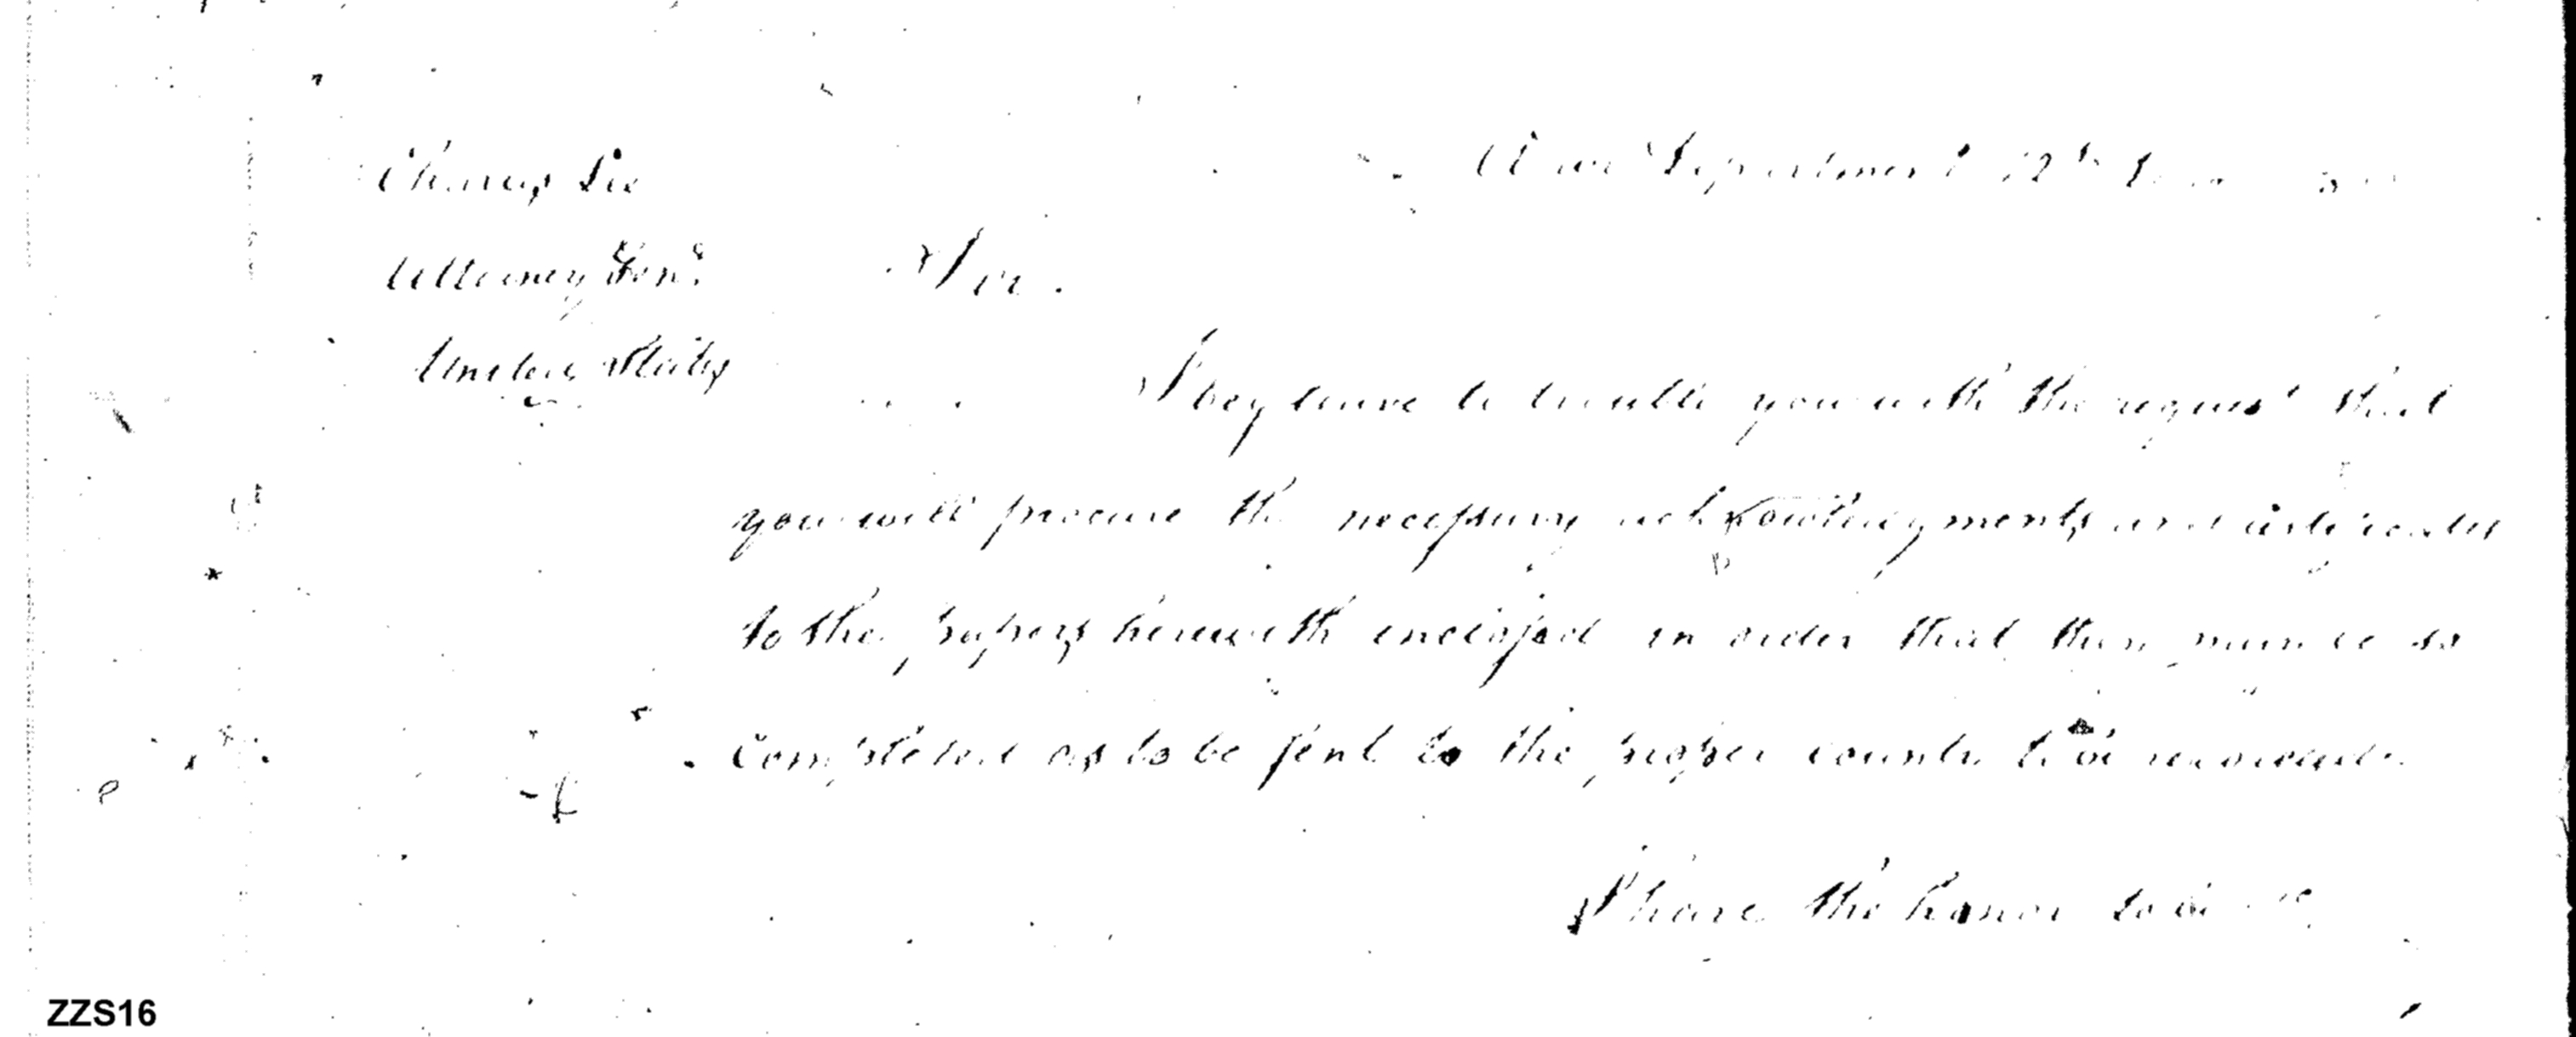 War Department 12th
Charles Lee
Attorney Genl.
Sir.
United States
I beg leave to trouble you with the request that
you will procure the necessary acknowledgments and certificates
to the papers herewith enclosed in order that they may be so
completed as to be sent to the proper county to be recorded.
I have the honor to be &c
ZZS16